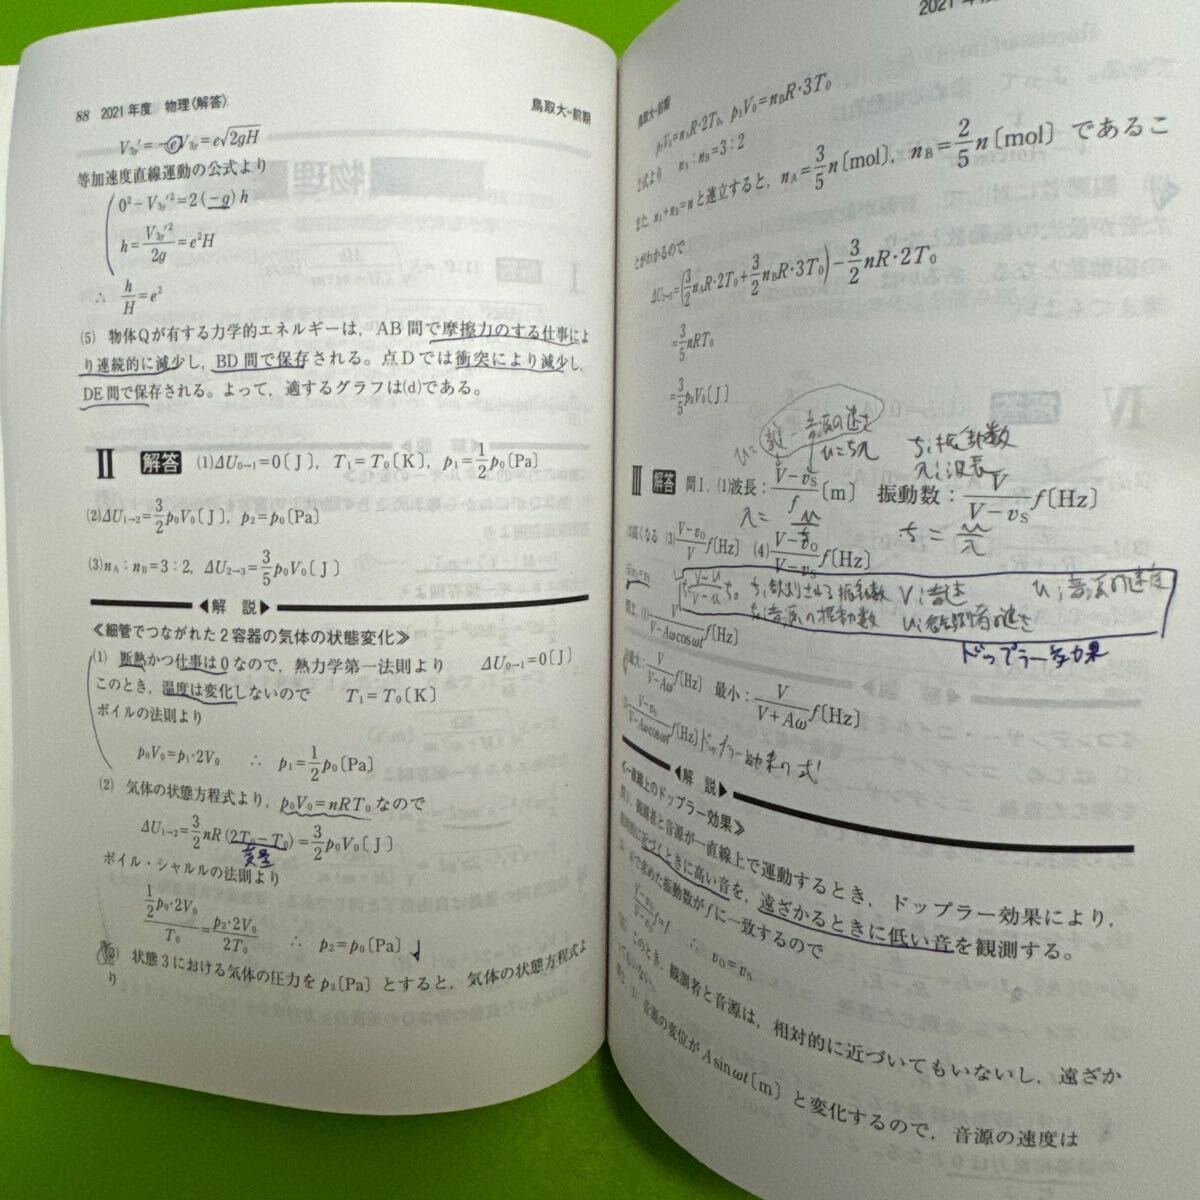 88 2021年度 物理〈解答〉 鳥取大-前期
V₃y′=-eV₃y=e√2gH
等加速度直線運動の公式より
0²-V₃y′²=2(-g)h
h=V₃y′²/2g=e²H
∴ h/H=e²
(5) 物体Qが有する力学的エネルギーは，AB間で摩擦力のする仕事によ
り連続的に減少し，BD間で保存される。点Dでは衝突により減少し，
DE間で保存される。よって，適するグラフは(d)である。
II 解答 (1)ΔU₀→₁=0〔J〕，T₁=T₀〔K〕，p₁=1/2p₀〔Pa〕
(2)ΔU₁→₂=3/2p₀V₀〔J〕，p₂=p₀〔Pa〕
(3)nA：nB=3：2，ΔU₂→₃=3/5p₀V₀〔J〕
◀解 説▶
≪細管でつながれた2容器の気体の状態変化≫
(1) 断熱かつ仕事は0なので，熱力学第一法則より ΔU₀→₁=0〔J〕
このとき，温度は変化しないので T₁=T₀〔K〕
ボイルの法則より
p₀V₀=p₁·2V₀ ∴ p₁=1/2p₀〔Pa〕
(2) 気体の状態方程式より，p₀V₀=nRT₀なので
ΔU₁→₂=3/2nR(2T₀-T₀)=3/2p₀V₀〔J〕
変量
ボイル・シャルルの法則より
1/2p₀·2V₀/T₀=p₂·2V₀/2T₀ ∴ p₂=p₀〔Pa〕
(3) 状態3における気体の圧力をp₃〔Pa〕とすると，気体の状態方程式よ
り
2021年度
鳥取大-前期
p₃V₀=nAR·2T₀，p₃V₀=nBR·3T₀
上式より nA：nB=3：2
また，nA+nB=nと連立すると，nA=3/5n〔mol〕，nB=2/5n〔mol〕であるこ
とがわかるので
ΔU₂→₃=(3/2nAR·2T₀+3/2nBR·3T₀)-3/2nR·2T₀
=3/5nRT₀
=3/5p₀V₀〔J〕
音速-音源の速さ
f；振動数
λ；波長
III 解答 問1．(1)波長：V-vS/f〔m〕 振動数：V/V-vS f〔Hz〕
高くなる (3)V-vO/V f〔Hz〕 (4)V-vO/V-vS f〔Hz〕
観測される振動数 V；音速 u；音源の速度
音源の振動数
V/V-Aωcosωt f〔Hz〕
ドップラー効果
最大：V/V-Aω f〔Hz〕 最小：V/V+Aω f〔Hz〕
V-vO/V-Aωcosωt f〔Hz〕 ドップラー効果の式!
◀解 説▶
≪一直線上のドップラー効果≫
問1．観測者と音源が一直線上で運動するとき，ドップラー効果により，
相対的に近づくときに高い音を，遠ざかるときに低い音を観測する。
で求めた振動数がfに一致するので
V-vO/V-vS f=f ∴ vO=vS
このとき，観測者と音源は，相対的に近づいてもいないし，遠ざか
ってもいない。
問2．(1) 音源の変位がAsinωt〔m〕と変化するので，音源の速度は